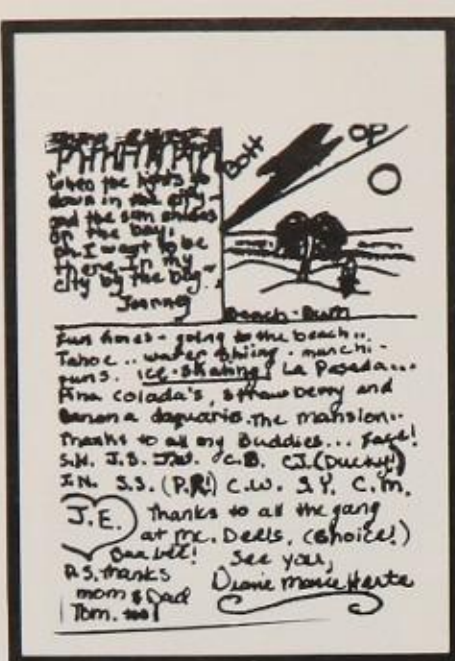 When the lights go
down in the city -
and the sun shines
on the bay,
oh I want to be
there in my
city by the bay -
Journey
Bott
op
Beach - Bum
Fun times - going to the beach..
Tahoe.. water skiing - munchi -
runs. ice-skating! La Posada...
Pina colada's, strawberry and
banana daquaris. The mansion..
Thanks to all my Buddies...
S.H. J.S. J.W. C.B. CJ.(Ducky!)
I.N. S.S. (P.R.!) C.W. S.Y. C.M.
J.E. Thanks to all the gang
at Mc. Dee's, (choice!)
See you,
P.S. thanks
mom & Dad
Tom. too!
Diane Marie